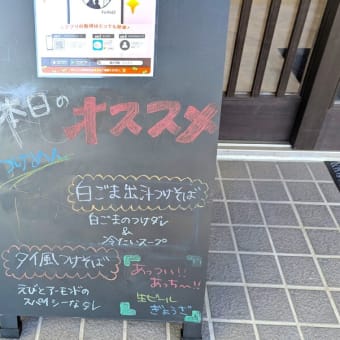 本日の
オススメ
つけめん
白ごま出汁つけそば
白ごまのつけダレ
&
冷たいスープ
タイ風つけそば
えびとアーモンドの
スパイシーなタレ
あっつい!!
あっち〜!!
生ビール
ぎょうざ